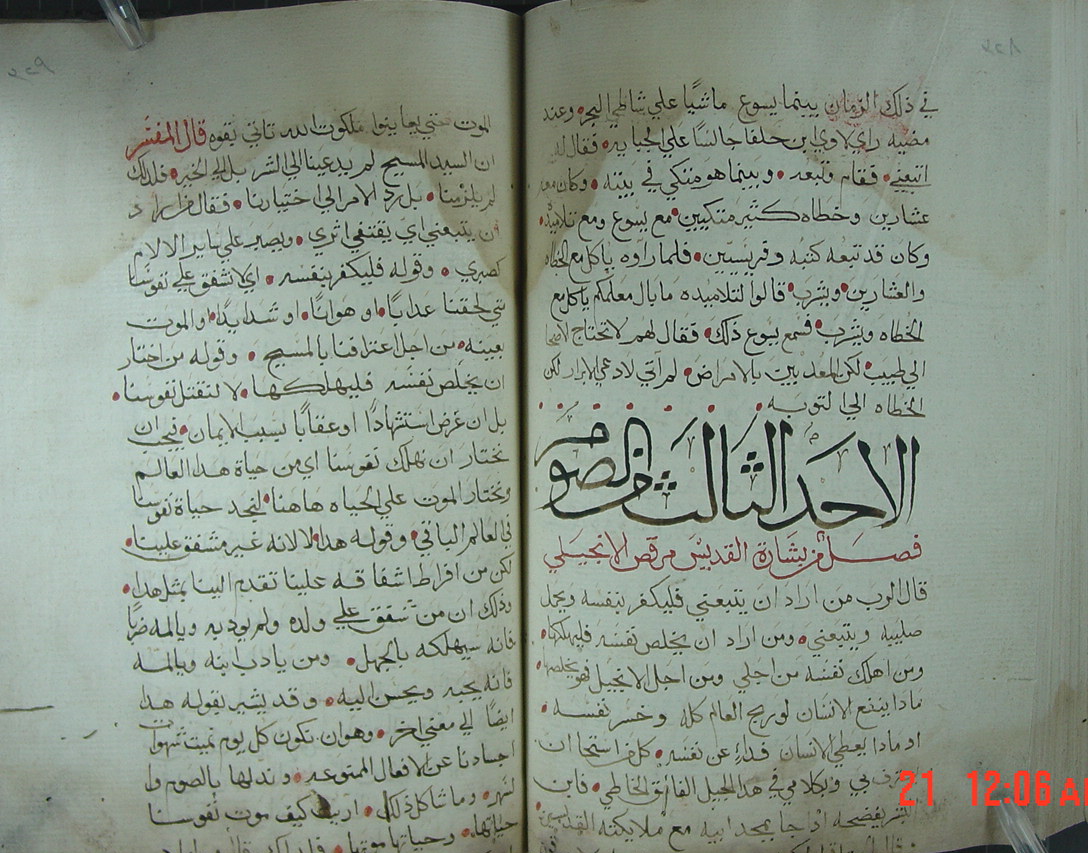 في ذلك الزمان بينما يسوع ماشيًا علي شاطي البحر وعند
مضيه راي لاوي بن حلفا جالسًا علي الجبايه فقال له
اتبعني فقام وتبعه وبينما هو متكي في بيته وكان معه
عشارين وخطاه كثير متكيين مع يسوع ومع تلاميذه
وكان قد تبعه كتبه وفريسيين فلما راوه ياكل مع الخطاه
والعشارين ويشرب قالوا لتلاميده ما بال معلمكم ياكل مع
الخطاه ويشرب فسمع يسوع ذلك فقال لهم لا تحتاج الاصحا
الي طبيب لكن المعدبين بالامراض لم آتي لادعي الابرار لكن
الخطاه الي التوبه
الاحد الثالث من الصوم
فصل من بشارة القديس مرقص الانجيلي
قال الرب من اراد ان يتبعني فليكفر بنفسه ويحمل
صليبه ويتبعني ومن اراد ان يخلص نفسه فليهلكها
ومن اهلك نفسه من اجلي ومن اجل الانجيل فهو يخلصها
مادا ينفع الانسان لو ربح العالم كله وخسر نفسه
او مادا يعطي الانسان فداءً عن نفسه كل من استحا ان
يعترف بي وبكلامي في هدا الجيل الفاسق الخاطي فابن
البشر يفضحه ادا جا بمجد ابيه مع ملايكته القديسين
الموت حتي يعاينوا ملكوت الله تاتي بقوه قال المفسر
ان السيد المسيح لم يدعينا الي الشر بل الي الخير فلدلك
لم يلزمنا بل رد الامر الي اختيارنا فقال من اراد
ان يتبعني اي يقتفي اثري ويصبر علي ساير الالام
كصبري وقوله فليكفر بنفسه اي لا شفق علي نفوسنا
متي لحقنا عدابًا او هوانًا او شدايدًا او الموت
بعينه من اجل اعترافنا بالمسيح وقوله من اختار
ان يخلص نفسه فليهلكها لا لنقتل نفوسنا
بل ان عرض استشهادًا او عقابًا بسبب الايمان فيجب ان
نختار ان نهلك نفوسنا اي من حياة هدا العالم
ونختار الموت علي الحياه هاهنا لنجد حياة نفوسنا
في العالم الباقي وقوله هدا لا لانه غير مشفق علينا
لكن من افراط اشفاقه علينا تقدم الينا بمثل هدا
ودلك ان من شفق علي ولده ولم يودبه ويالمه ضربًا
فانه سيهلكه بالجهل ومن يادب ابنه ويالمه
فانه يحبه ويحسن اليه وقد يشير بقوله هدا
ايضًا الي معني اخر وهو ان نكون كل يوم نميت شهوات
اجسادنا عن الافعال الممنوعه وندلها بالصوم وا
لسهر وما شاكل ذلك اريت كيف موت نفوسنا
حياتها وحياتها موتها